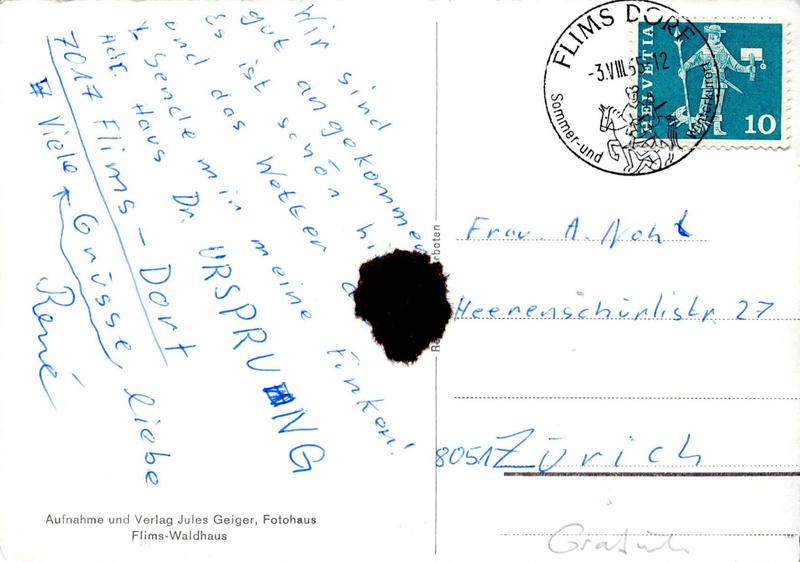 Wir sind
gut angekommen
Es ist schön
und das Wetter
& sende mir meine Finken!
Adr. Haus Dr. URSPRUNG
7017 Flims-Dorf
Viele Grüsse, liebe
René
Aufnahme und Verlag Jules Geiger, Fotohaus
Flims-Waldhaus
FLIMS DORF
-3.VIII.65-12
Sommer-und Winterkurort
HELVETIA
10
Frau A. Nohl
Heerenschürlistr. 27
8051 Zürich